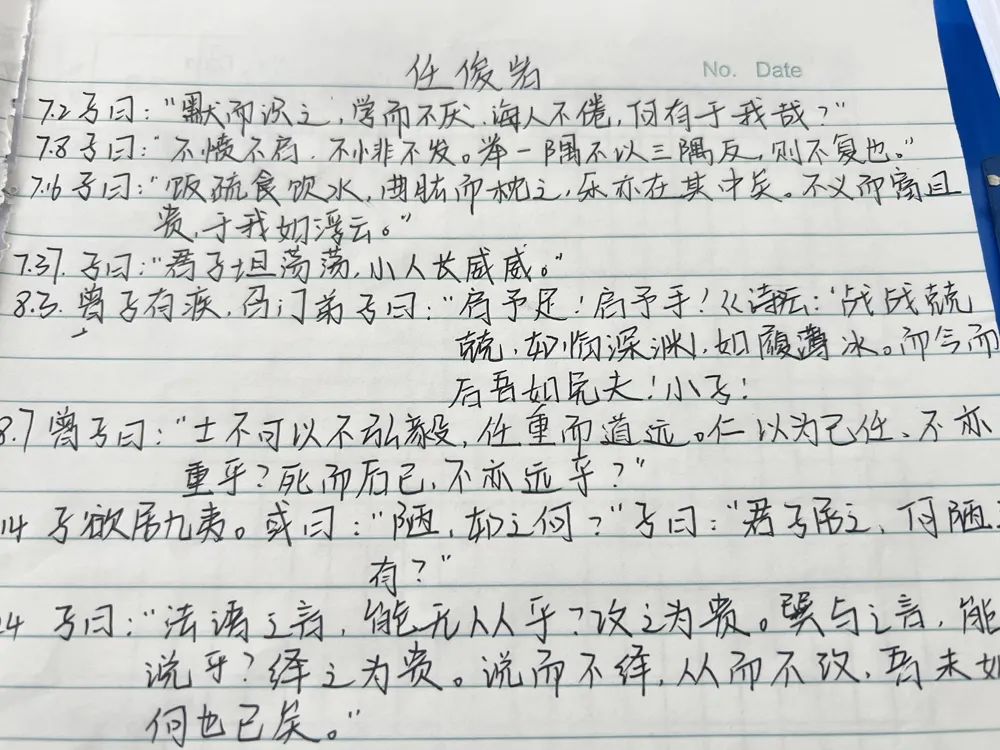 任俊岩
No. Date
7.2 子曰:"默而识之,学而不厌.诲人不倦,何有于我哉?"
7.8 子曰:"不愤不启.不悱不发。举一隅不以三隅反,则不复也。"
7.16 子曰:"饭疏食饮水,曲肱而枕之,乐亦在其中矣。不义而富且
贵,于我如浮云。"
7.37. 子曰:"君子坦荡荡,小人长戚戚。"
8.3. 曾子有疾,召门弟子曰:"启予足!启予手!《诗》云:'战战兢
兢,如临深渊,如履薄冰。而今而
后吾知免夫!小子!
8.7 曾子曰:"士不可以不弘毅,任重而道远。仁以为己任、不亦
重乎?死而后已,不亦远乎?"
14 子欲居九夷。或曰:"陋,如之何?"子曰:"君子居之,何陋
有?"
24 子曰:"法语之言,能无从乎?改之为贵。巽与之言,能
说乎?绎之为贵。说而不绎,从而不改,吾未如
何也已矣。"